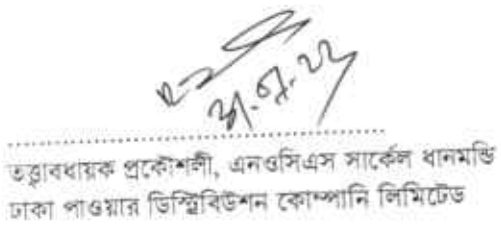 তত্ত্বাবধায়ক প্রকৌশলী, এনওসিএস সার্কেল ধানমন্ডি
ঢাকা পাওয়ার ডিস্ট্রিবিউশন কোম্পানি লিমিটেড